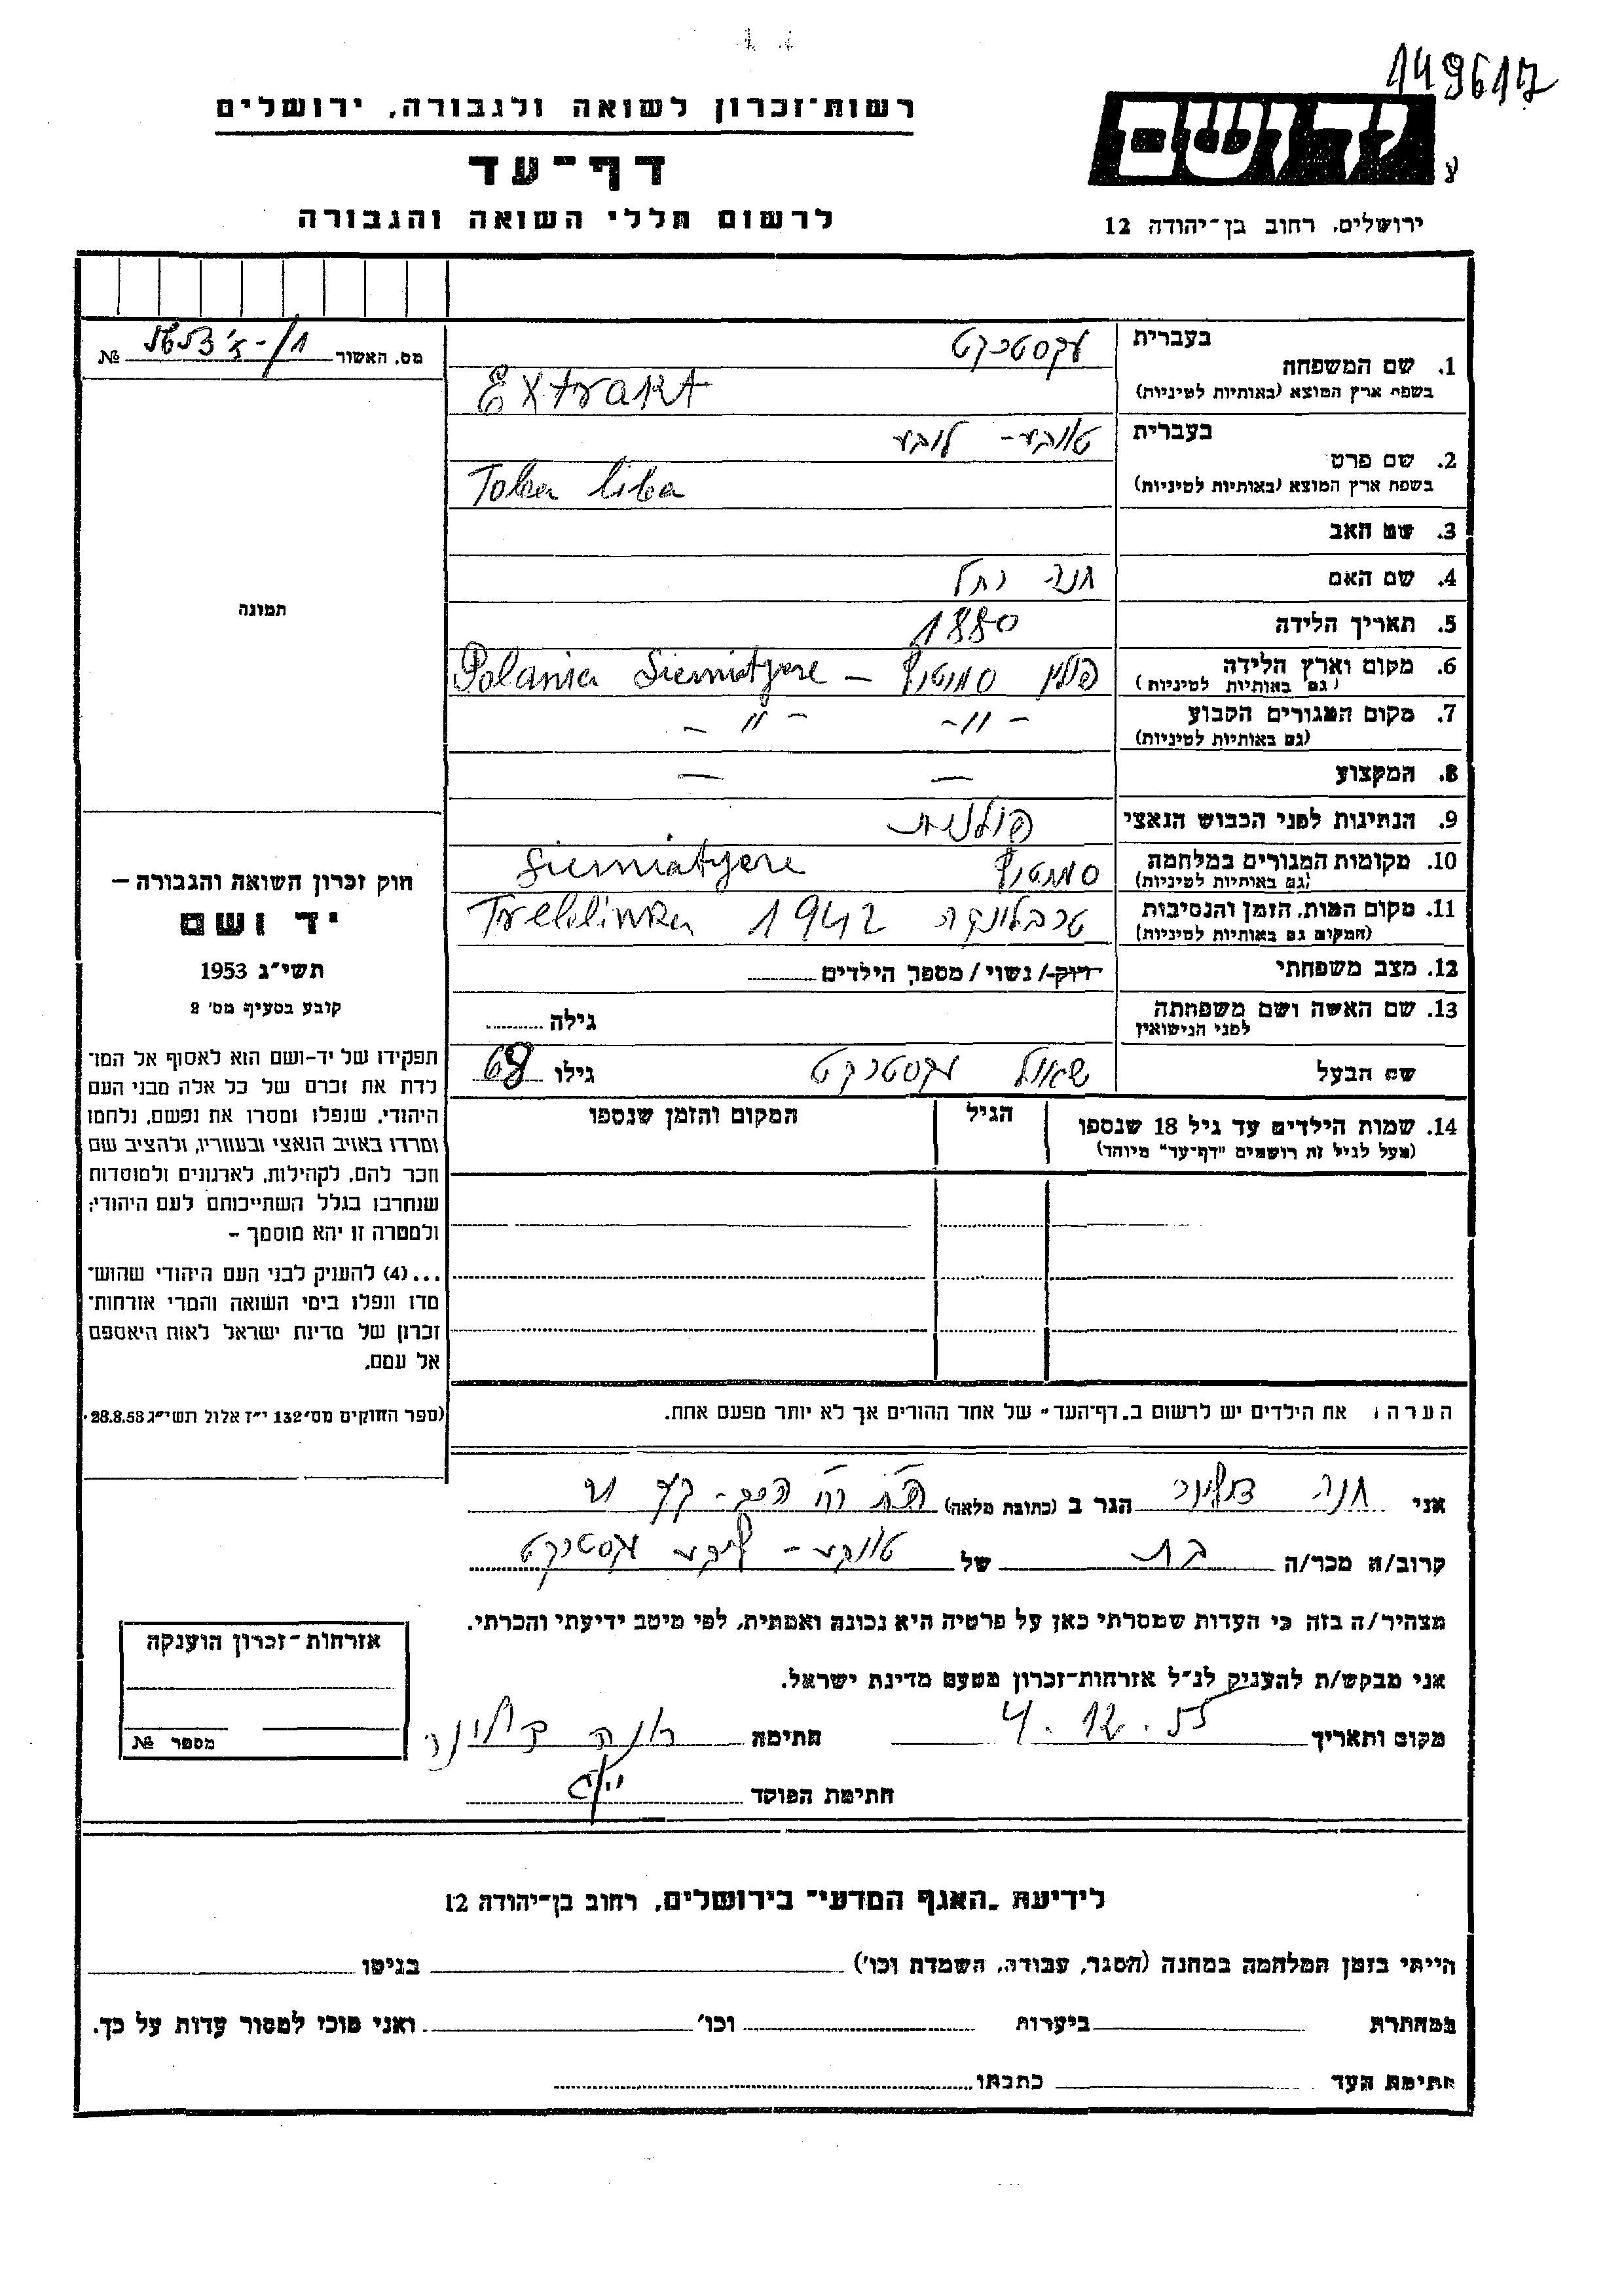 149617
רשות־זכרון לשואה ולגבורה, ירושלים
יד ושם
דף־עד
לרשום חללי השואה והגבורה
ירושלים, רחוב בן־יהודה 12
מס. האשור №
בעברית
1. שם המשפחה
עקסטרקט
בשפת ארץ המוצא (באותיות לטיניות)
Extrakt
בעברית
טובע - ליבע
2. שם פרטי
בשפת ארץ המוצא (באותיות לטיניות)
Toba liba
3. שם האב
4. שם האם חנה רחל
5. תאריך הלידה 1880
6. מקום וארץ הלידה
(גם באותיות לטיניות)
פולין Polania Siemiatyere –
7. מקום המגורים הקבוע
(גם באותיות לטיניות)
– 〃 – – 〃 –
8. המקצוע — —
9. הנתינות לפני הכבוש הנאצי פולנית
10. מקומות המגורים במלחמה
(גם באותיות לטיניות)
Siemiatyere
11. מקום המות, הזמן והנסיבות
(המקום גם באותיות לטיניות)
טרבלינקה 1942 Treblinka
12. מצב משפחתי רווק / נשוי / מספר הילדים
13. שם האשה ושם משפחתה
לפני הנישואין
גילה
שם הבעל שאול עקסטרקט גילו 68
14. שמות הילדים עד גיל 18 שנספו
(מעל לגיל זה רושמים "דף־עד" מיוחד)
הגיל
המקום והזמן שנספו
הערה: את הילדים יש לרשום ב„דף־העד" של אחד ההורים אך לא יותר מפעם אחת.
תמונה
חוק זכרון השואה והגבורה –
יד ושם
תשי"ג 1953
קובע בסעיף מס' 2
תפקידו של יד-ושם הוא לאסוף אל המו־
לדת את זכרם של כל אלה מבני העם
היהודי, שנפלו ומסרו את נפשם, נלחמו
ומרדו באויב הנאצי ובעוזריו, ולהציב שם
וזכר להם, לקהילות, לארגונים ולמוסדות
שנחרבו בגלל השתייכותם לעם היהודי;
ולמטרה זו יהא מוסמך –
...(4) להעניק לבני העם היהודי שהוש־
מדו ונפלו בימי השואה והמרי אזרחות־
זכרון של מדינת ישראל לאות היאספם
אל עמם.
(ספר החוקים מס' 132 י"ז אלול תשי"ג 28.8.53.
אני חנה הגר ב (כתובת מלאה)
קרוב/ה מכר/ה בת של טובע - ליבע עקסטרקט
מצהיר/ה בזה כי העדות שמסרתי כאן על פרטיה היא נכונה ואמתית, לפי מיטב ידיעתי והכרתי.
אני מבקש/ת להעניק לנ"ל אזרחות־זכרון מטעם מדינת ישראל.
מקום ותאריך 4.12.55 חתימה חנה
חתימת הפוקד
אזרחות־זכרון הוענקה
מספר №
לידיעת „האגף המדעי" בירושלים, רחוב בן־יהודה 12
הייתי בזמן המלחמה במחנה (הסגר, עבודה, השמדה וכו') בגיטו
במחתרת ביערות וכו' ואני מוכן למסור עדות על כך.
חתימת העד כתבתו